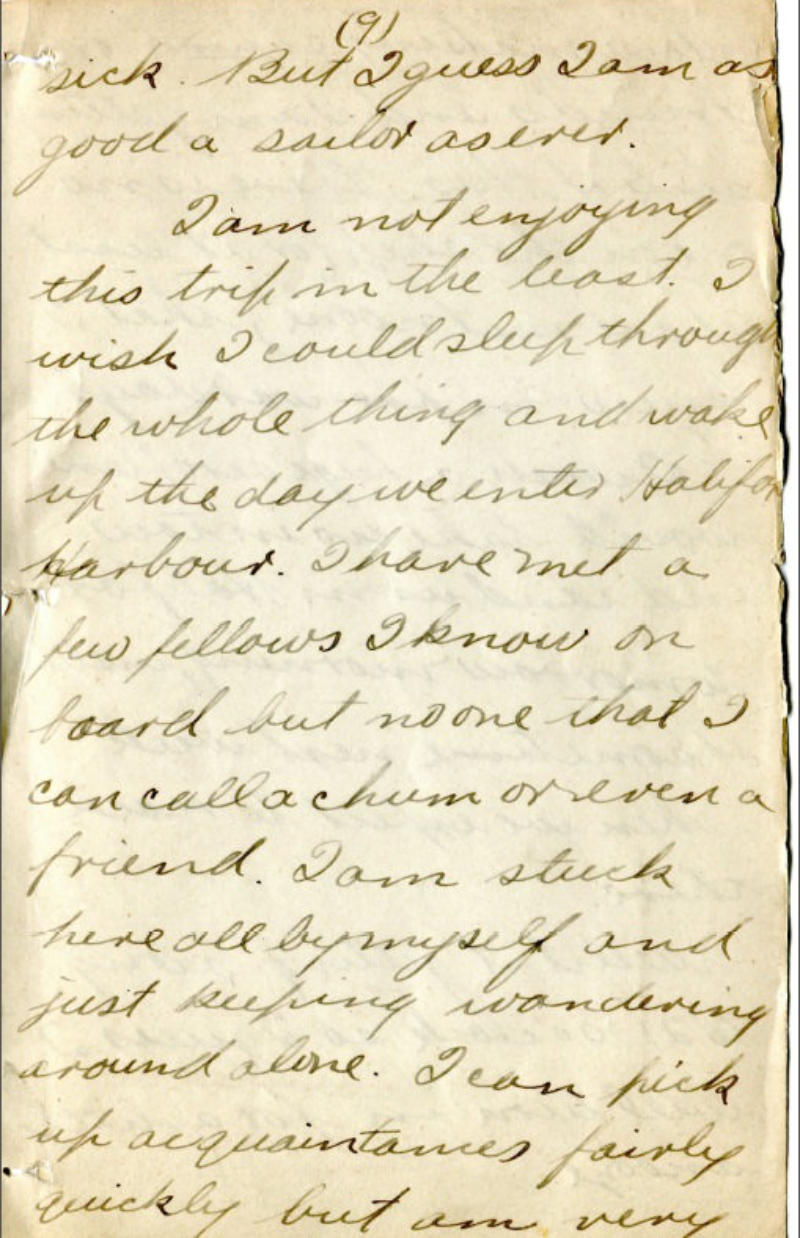 (9)
sick. But I guess I am as
good a sailor as ever.
I am not enjoying
this trip in the least. I
wish I could sleep through
the whole thing and wake
up the day we enter Halifax
Harbour. I have met a
few fellows I know on
board but no one that I
can call a chum or even a
friend. I am stuck
here all by myself and
just keeping wandering
around alone. I can pick
up acquaintances fairly
quickly but am very